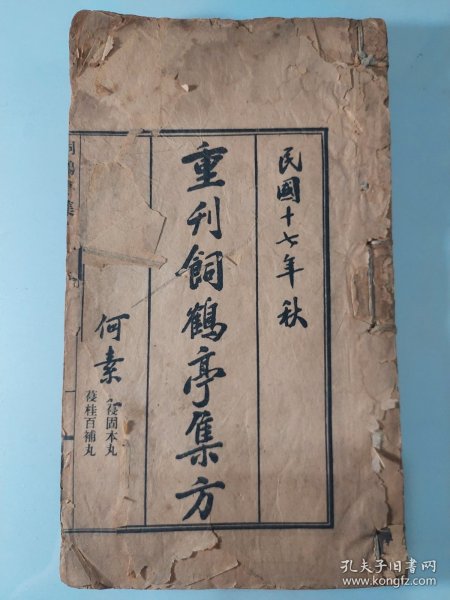 民國十七年秋
重刊飼鶴亭集方
何素
葠固本丸
葠桂百補丸
孔夫子旧书网
www.kongfz.com